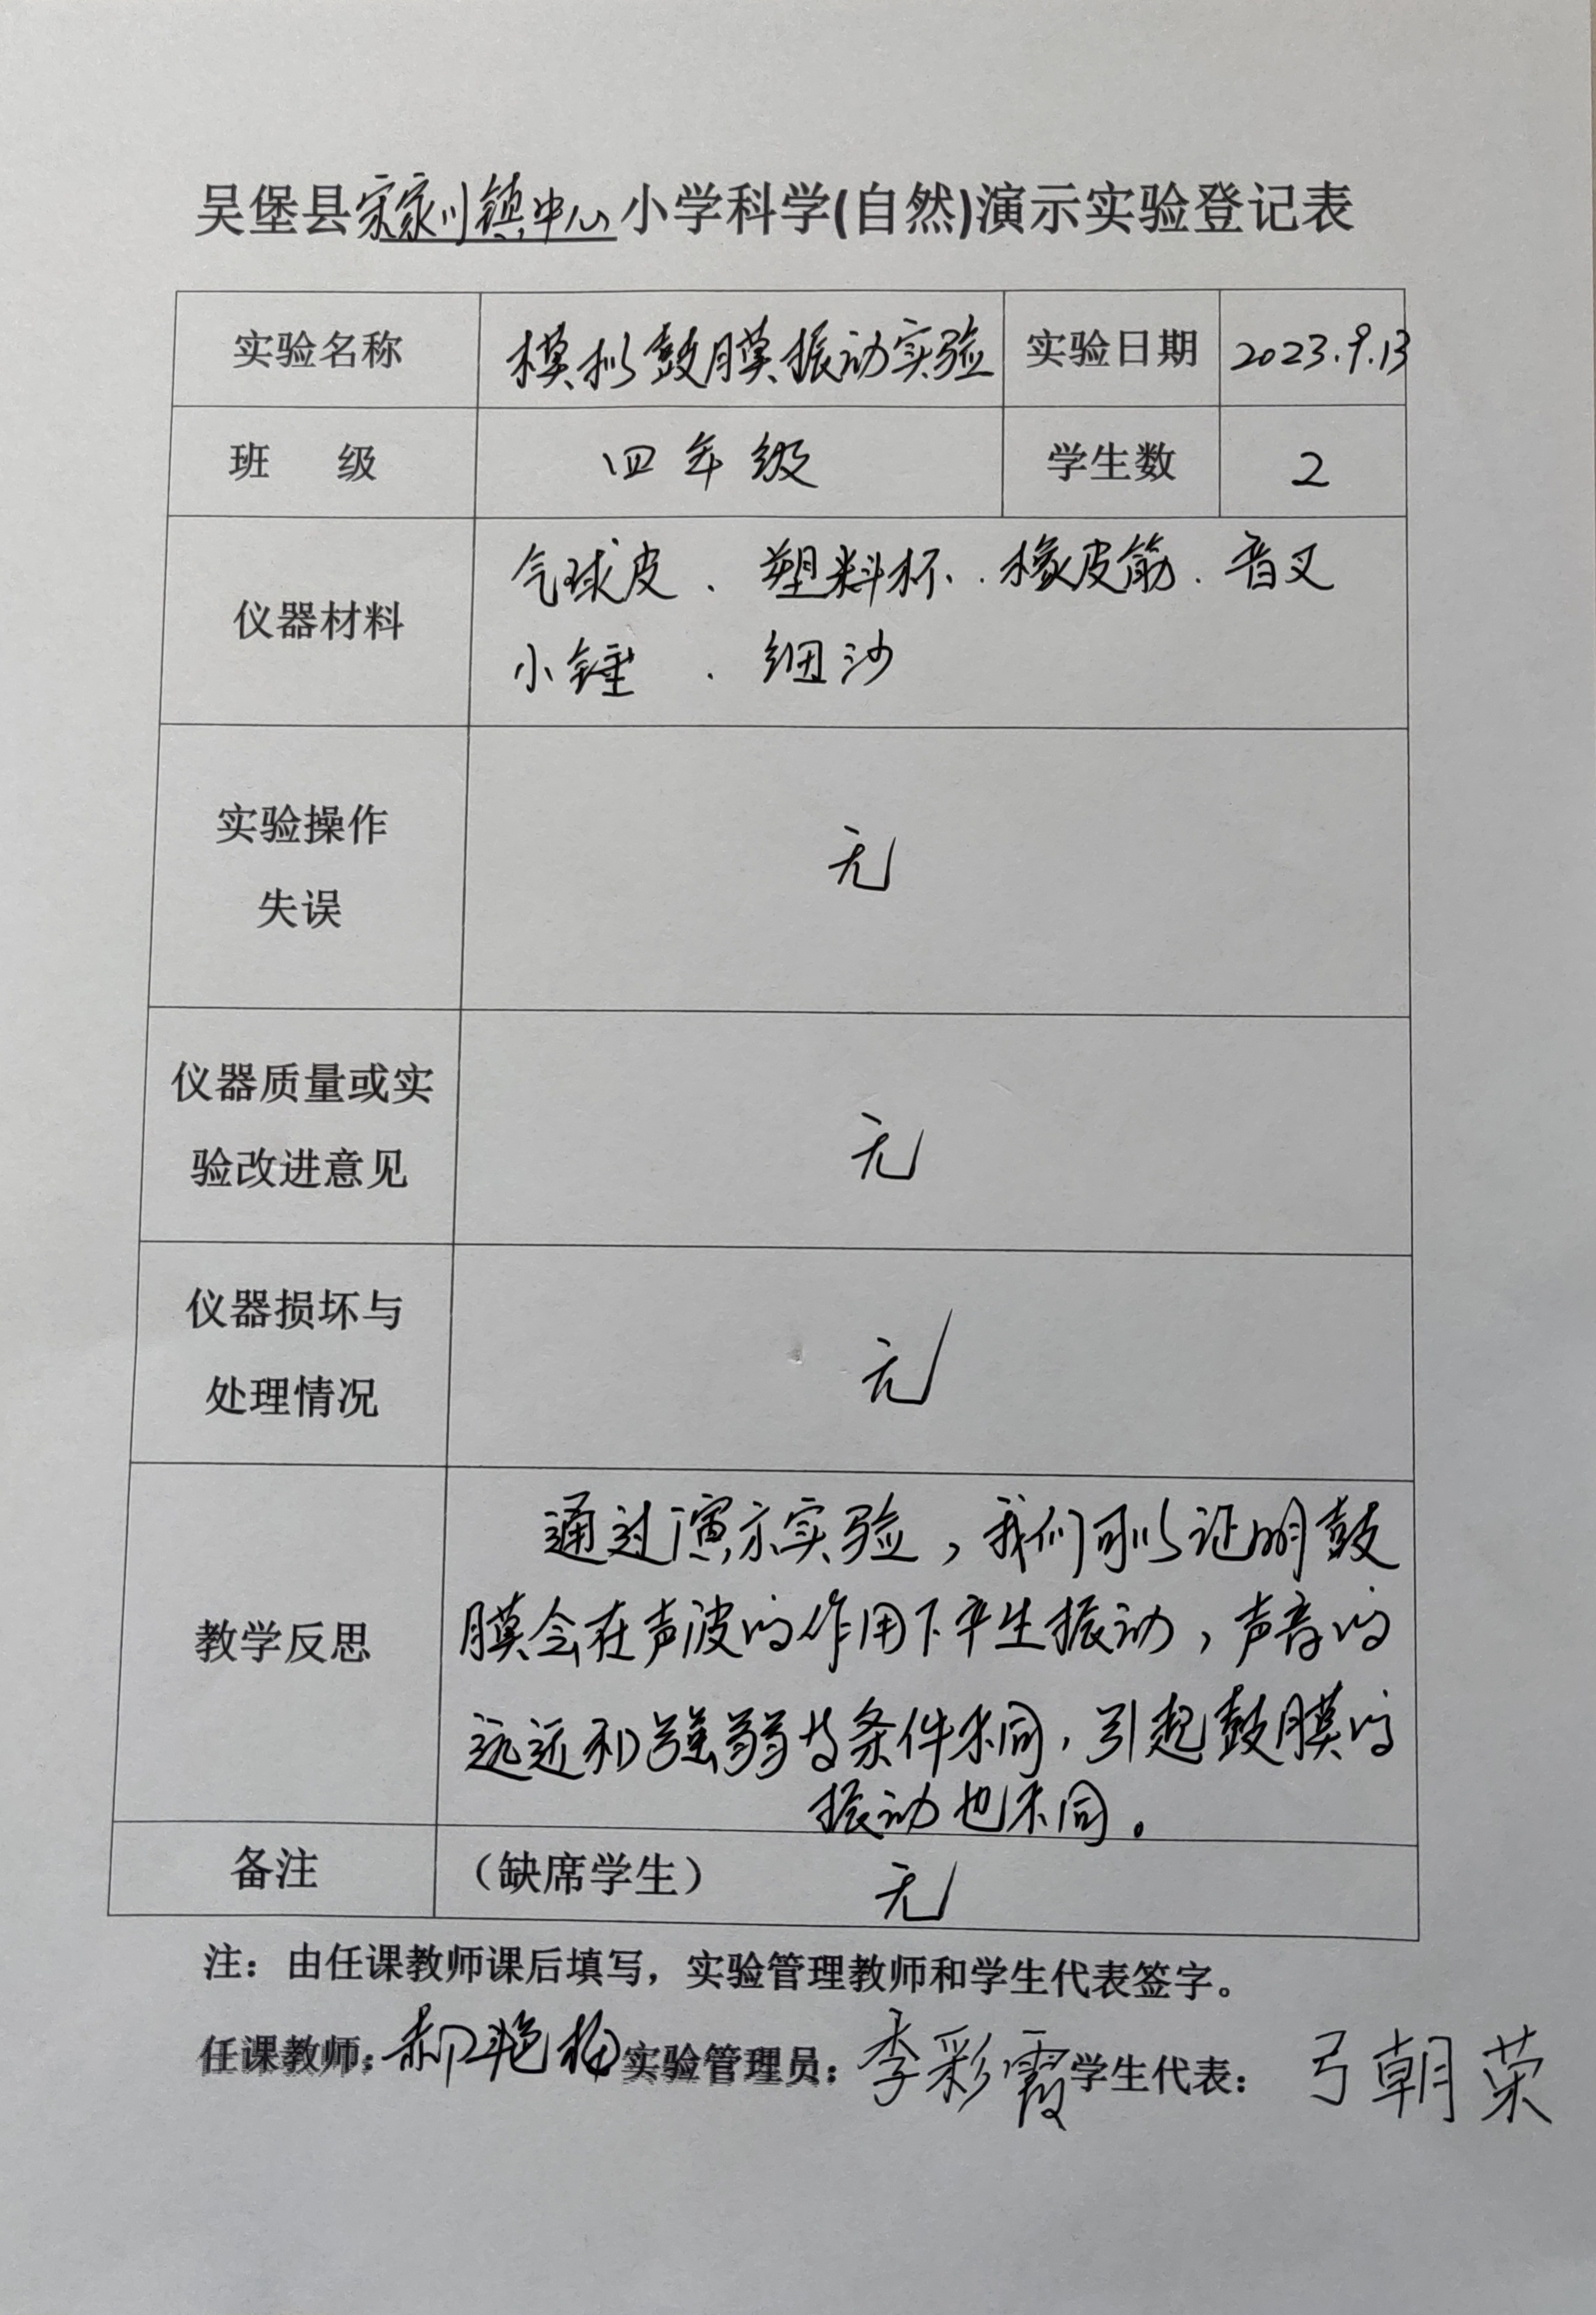 吴堡县宋家川镇中心小学科学(自然)演示实验登记表
实验名称 模拟鼓膜振动实验 实验日期 2023.9.13
班 级 四年级 学生数 2
仪器材料 气球皮．塑料杯．橡皮筋．音叉
小锤．细沙
实验操作
失误 无
仪器质量或实
验改进意见 无
仪器损坏与
处理情况 无
教学反思 通过演示实验，我们可以证明鼓
膜会在声波的作用下产生振动，声音的
远近和强弱等条件不同，引起鼓膜的
振动也不同。
备注 （缺席学生） 无
注：由任课教师课后填写，实验管理教师和学生代表签字。
任课教师：郝艳梅 实验管理员：李彩霞 学生代表：弓朝荣